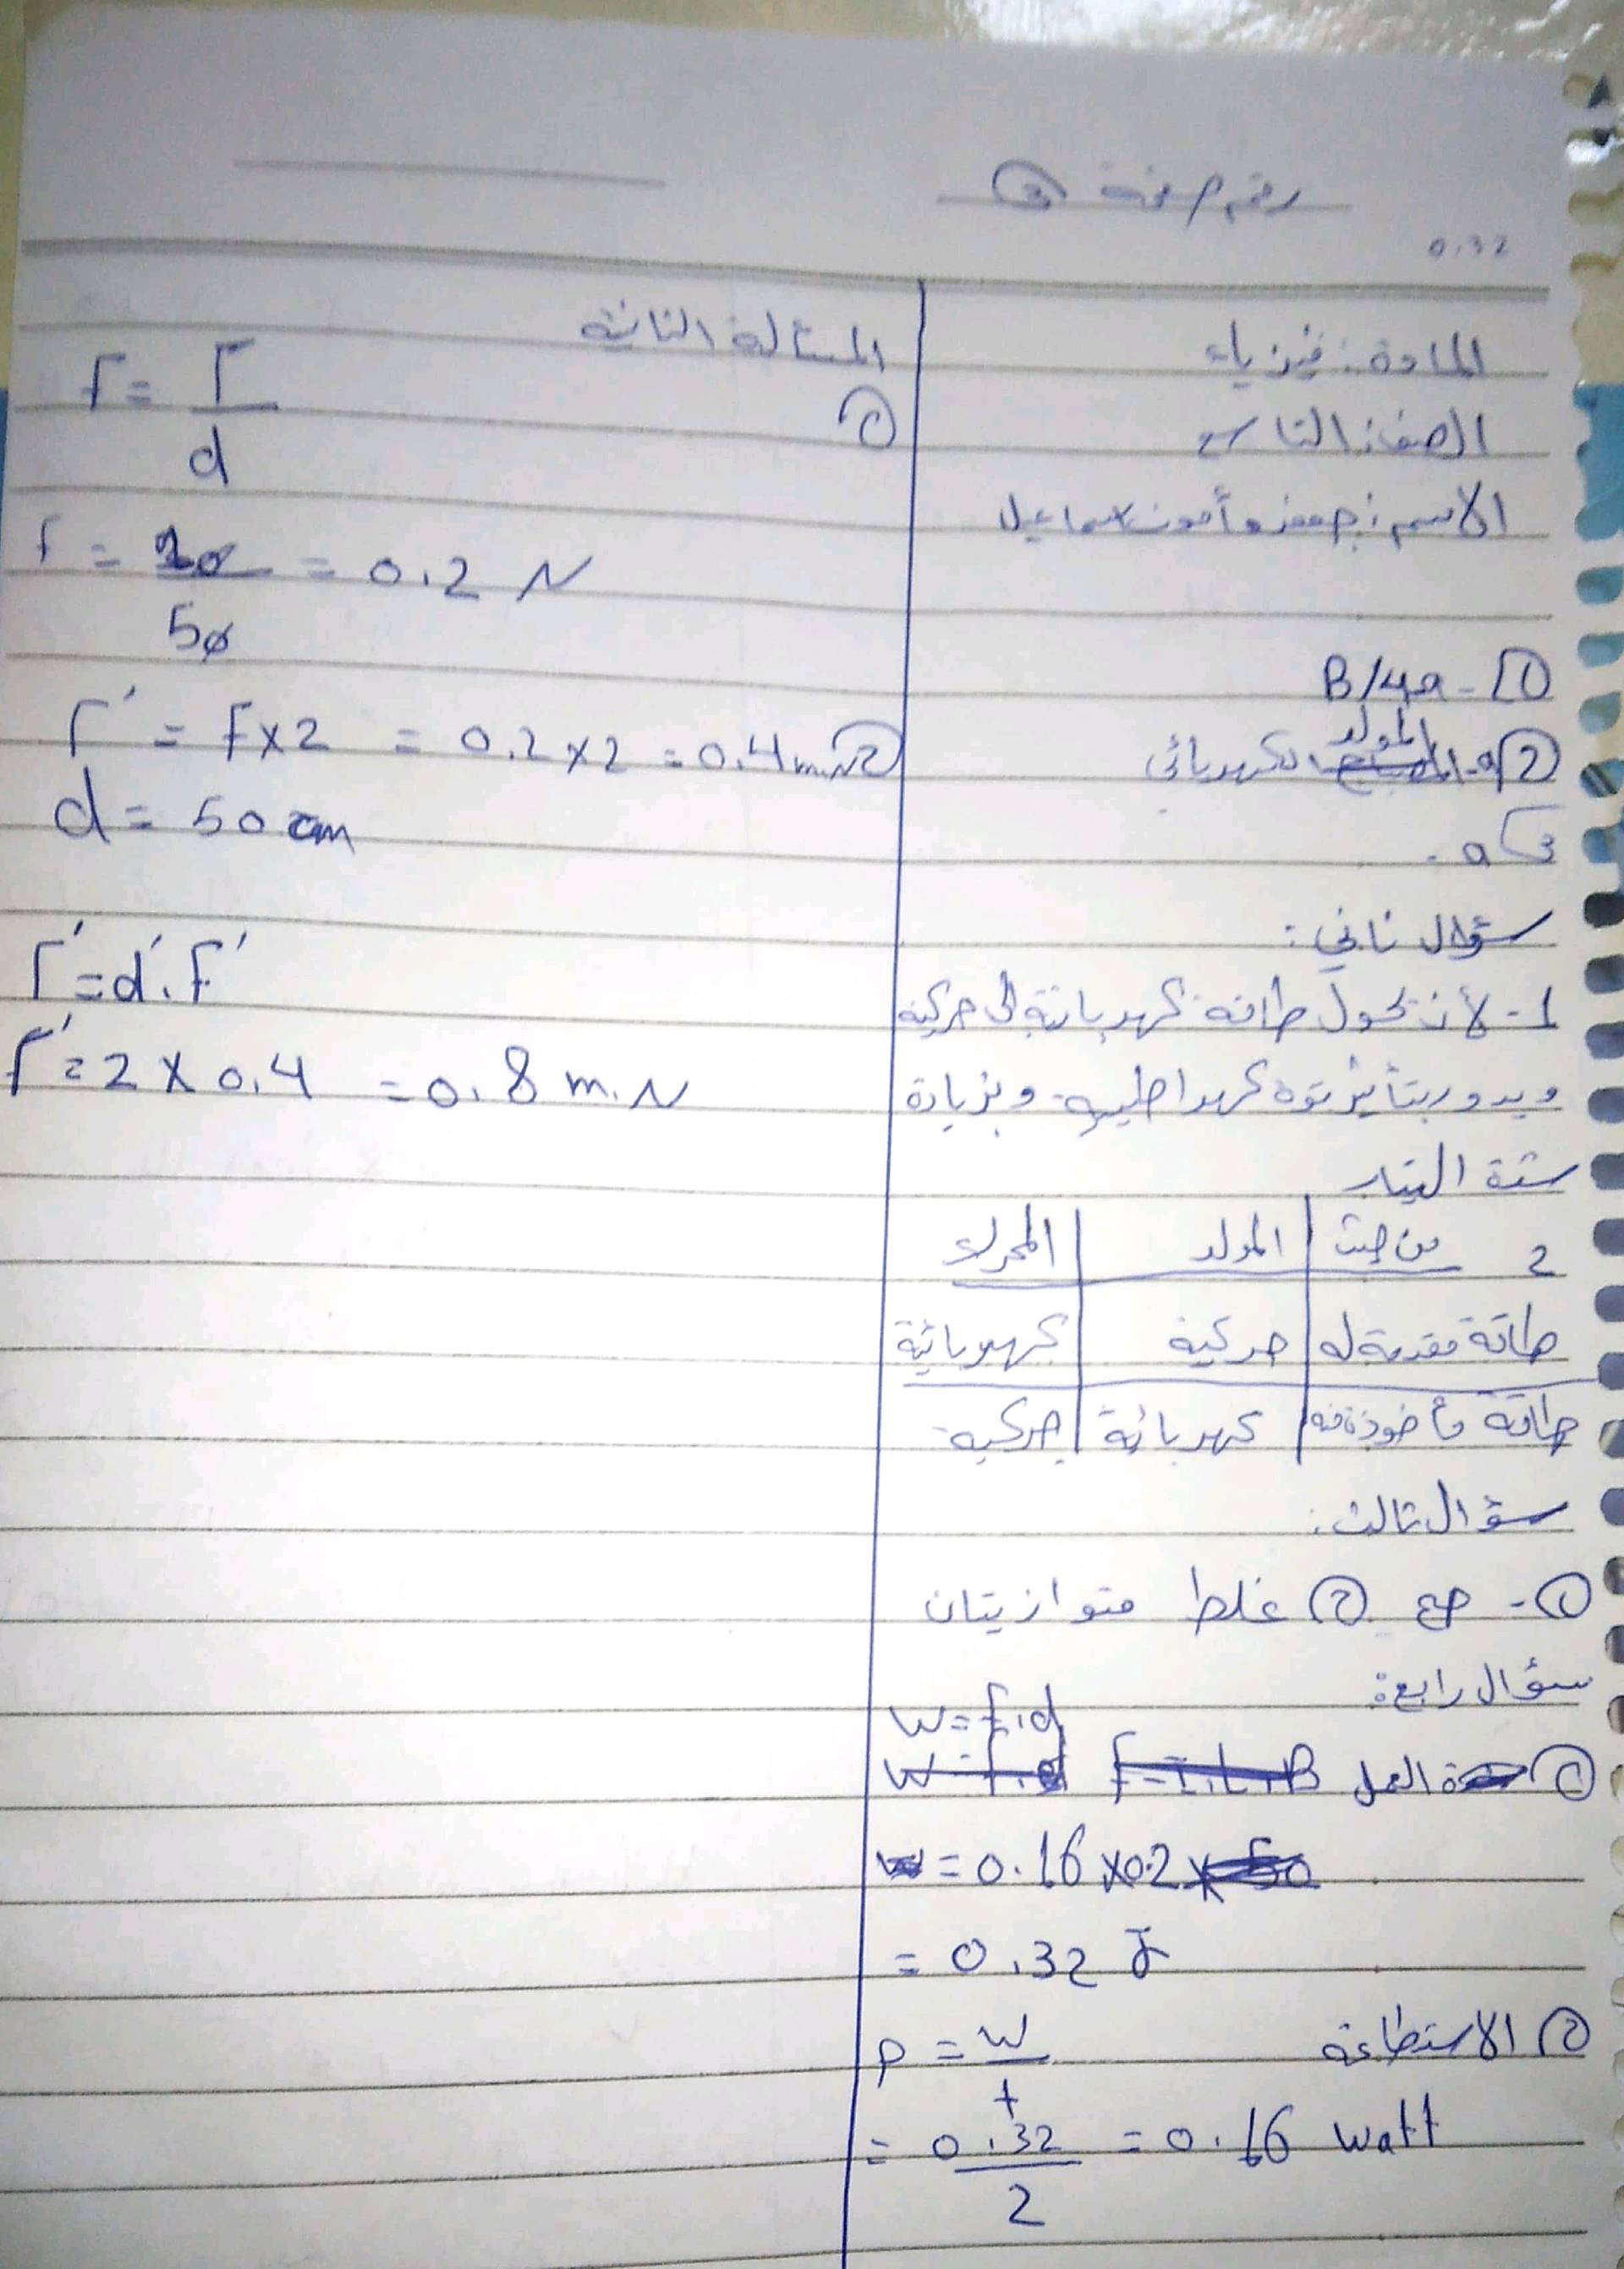 رقم صفحة ③
0.32
المادة: فيزياء
الصف: التاسع
الاسم: جعفر مأمون اسماعيل
① - B/4a
② a- المولد الكهربائي
3 a -
سؤال ثاني:
1 - لأن تحول طاقة كهربائية الى حركية
ويدور بتأثير قوة كهراطيسية وبزيادة
شدة التيار
2 من حيث | المولد | المحرك
طاقة مقدمة له | حركية | كهربائية
طاقة مأخوذة منه | كهربائة | حركية
سؤال ثالث:
① - صح ② غلط متوازيتان
سؤال رابع:
W = F . d
① العمل
= 0.16 x 0.2
= 0.32 J
② الاستطاعة P = W / t
= 0.32 / 2 = 0.16 watt
المسألة الثانية
① F = Γ / d
F = 10 / 50 = 0.2 N
② Γ' = F x 2 = 0.2 x 2 = 0.4 m.N
d = 50 cm
Γ' = d' . F'
Γ' = 2 x 0.4 = 0.8 m.N